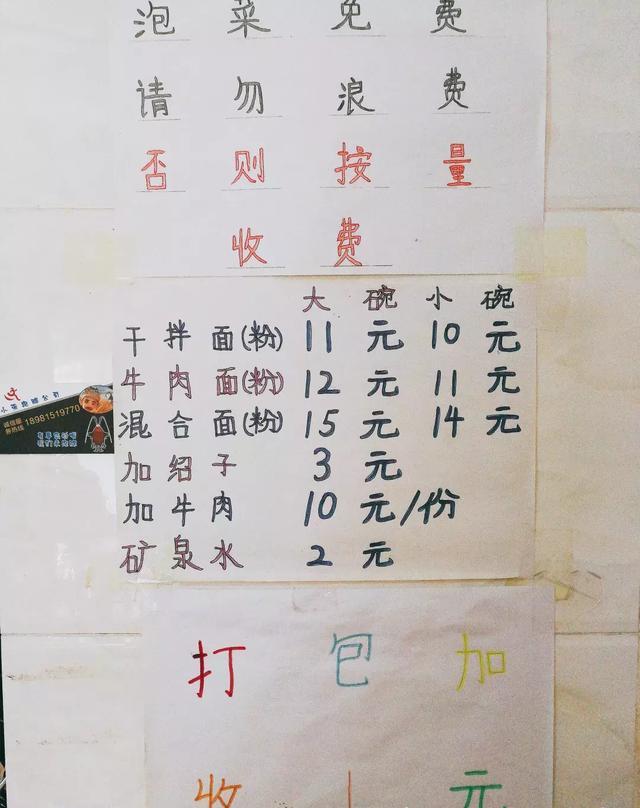 泡菜免费
请勿浪费
否则按量
收费
大碗 小碗
干拌面(粉) 11元 10元
牛肉面(粉) 12元 11元
混合面(粉) 15元 14元
加绍子 3元
加牛肉 10元/份
矿泉水 2元
18981519770
打包加
收1元